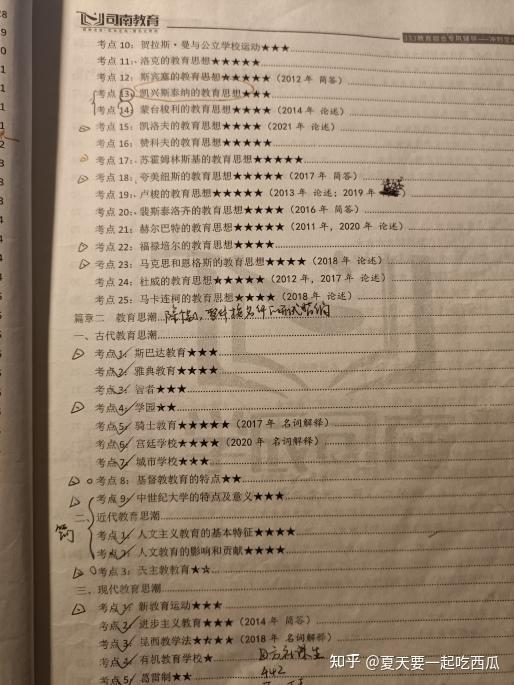 司南教育
考点 10: 贺拉斯·曼与公立学校运动★★★
考点 11: 洛克的教育思想★★★★
考点 12: 斯宾塞的教育思想★★★★★(2012 年 简答)
考点 13: 凯兴斯泰纳的教育思想★★★
考点 14: 蒙台梭利的教育思想★★★★(2014 年 论述)
考点 15: 凯洛夫的教育思想★★★★(2021 年 论述)
考点 16: 赞科夫的教育思想★★★★
考点 17: 苏霍姆林斯基的教育思想★★★★★
考点 18: 夸美纽斯的教育思想★★★★★(2017 年 简答)
考点 19: 卢梭的教育思想★★★★★(2013 年 论述; 2019 年
考点 20: 裴斯泰洛齐的教育思想★★★★★(2016 年 简答)
考点 21: 赫尔巴特的教育思想★★★★★(2011 年, 2020 年 论述)
考点 22: 福禄培尔的教育思想★★★★
考点 23: 马克思和恩格斯的教育思想★★★★(2018 年 论述)
考点 24: 杜威的教育思想★★★★★(2012 年, 2017 年 论述)
考点 25: 马卡连柯的教育思想★★★★(2018 年 论述)
篇章二 教育思潮
一、古代教育思潮
考点 1: 斯巴达教育★★★
考点 2: 雅典教育★★★★
考点 3: 智者★★★
考点 4: 学园★★
考点 5: 骑士教育★★★★★(2017 年 名词解释)
考点 6: 宫廷学校★★★★(2020 年 名词解释)
考点 7: 城市学校★★★
考点 8: 基督教教育的特点★★
考点 9: 中世纪大学的特点及意义★★★
二、近代教育思潮
考点 1: 人文主义教育的基本特征★★★★
考点 2: 人文教育的影响和贡献★★★★
考点 3: 天主教教育★★
三、现代教育思潮
考点 1: 新教育运动★★★
考点 2: 进步主义教育★★★(2014 年 简答)
考点 3: 昆西教学法★★★★(2018 年 名词解释)
考点 4: 有机教育学校★
考点 5: 葛雷制★★
知乎 @夏天要一起吃西瓜